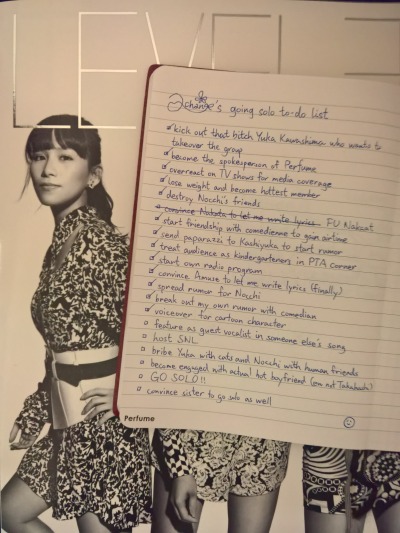 LEVEL3
a~change's going solo to-do list
kick out that bitch Yuka Kawashima who wants to
takeover the group
become the spokesperson of Perfume
overreact on TV shows for media coverage
lose weight and become hottest member
destroy Nocchi's friends
convince Nakata to let me write lyrics FU Nakcat
start friendship with comedienne to gain airtime
send paparazzi to Kashiyuka to start rumor
treat audience as kindergarteners in PTA corner
start own radio program
convince Amuse to let me write lyrics (finally?)
spread rumor for Nocchi
break out my own rumor with comedian
voiceover for cartoon character
feature as guest vocalist in someone else's song
host SNL
bribe Yuka with cats and Nocchi with human friends
become engaged with actual hot boyfriend (em not Takahashi?)
GO SOLO!!
convince sister to go solo as well
Perfume